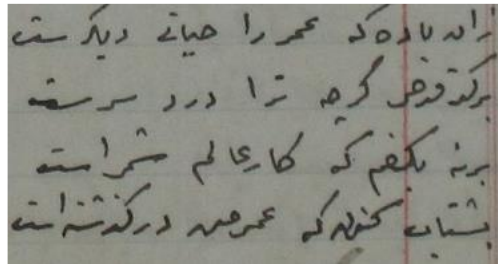 زان باده که عمر را حیاتی دیگرست
پرکن قدحی گرچه ترا درد سرست
برنه بکفم که کار عالم سمرست
بشتاب کنون که عمر من درگذرست